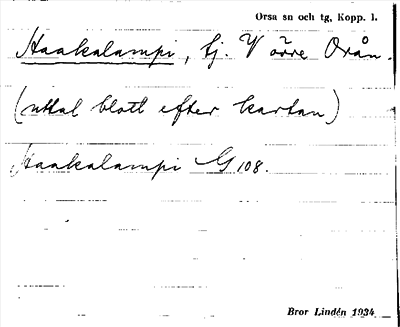 Orsa sn och tg, Kopp. l.
Haakalampi, tj. V övre Orån.
(uttal blott efter kartan)
Haakalampi G 108.
Bror Lindén 1934